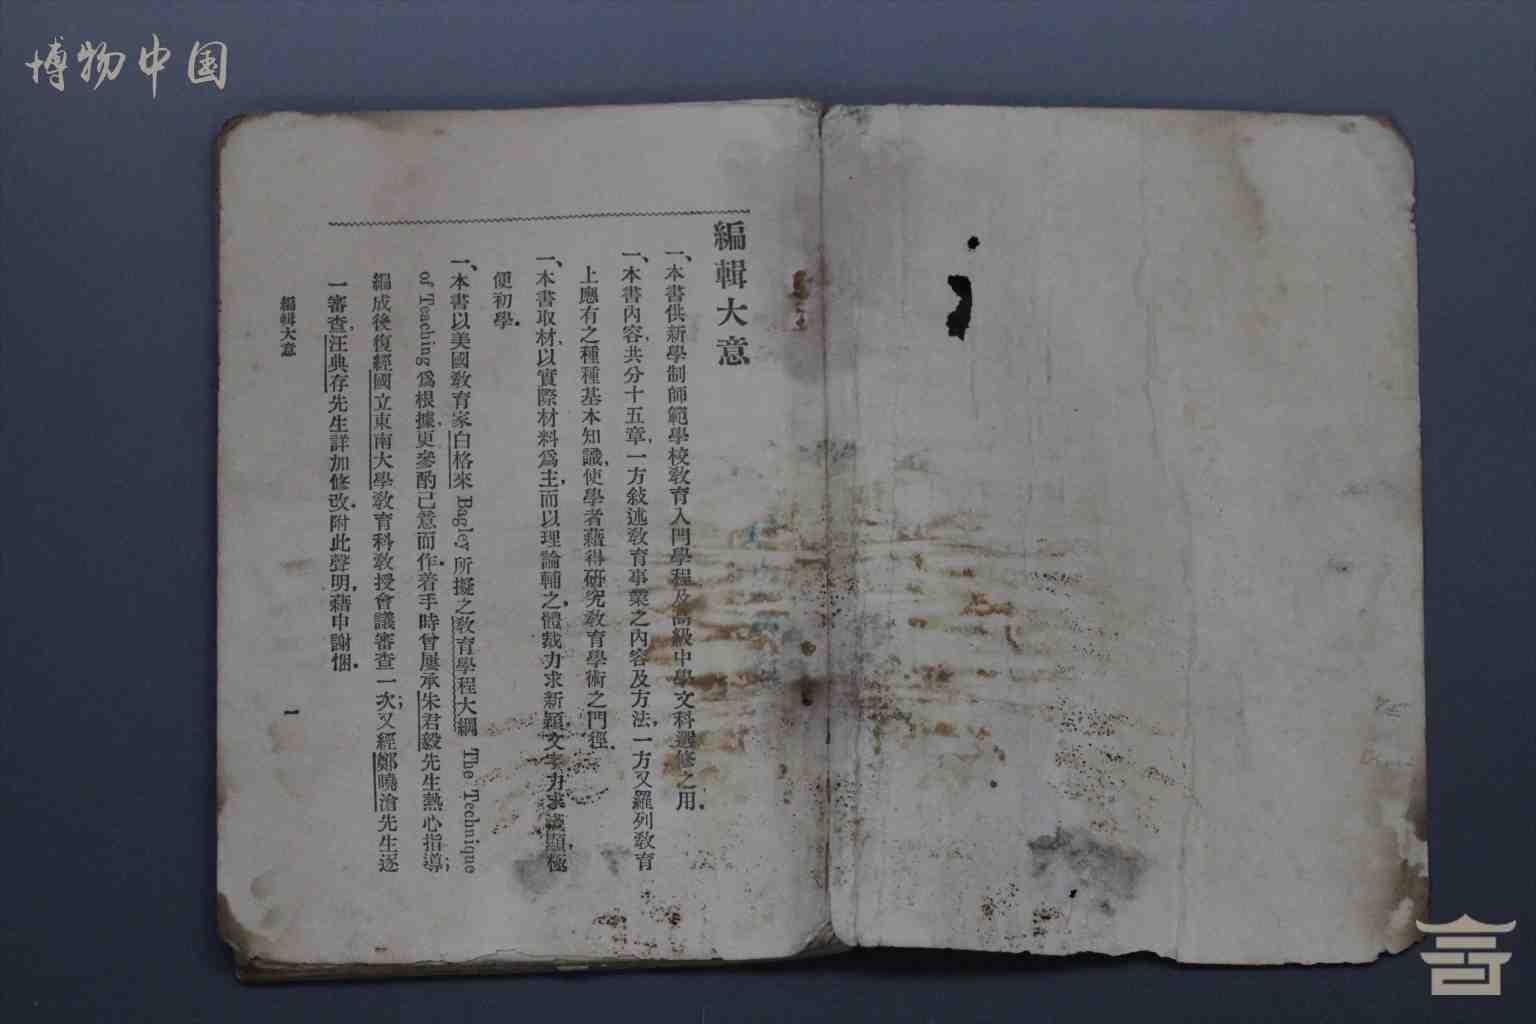 博物中国
編輯大意
一、本書供新學制師範學校教育入門學程及高級中學文科選修之用。
一、本書內容，共分十五章，一方敍述教育事業之內容及方法，一方又羅列教育
上應有之種種基本知識，使學者藉得研究教育學術之門徑。
一、本書取材，以實際材料爲主，而以理論輔之，體裁力求新穎，文字力求淺顯，極
便初學。
一、本書以美國教育家白格來 Bagley 所擬之教育學程大綱 The Technique
of Teaching 爲根據，更參酌己意而作。着手時曾屢承朱君毅先生熱心指導；
編成後復經國立東南大學教育科教授會議審查一次；又經鄭曉滄先生逐
一審查，汪典存先生詳加修改。附此聲明，藉申謝悃。
編輯大意
一